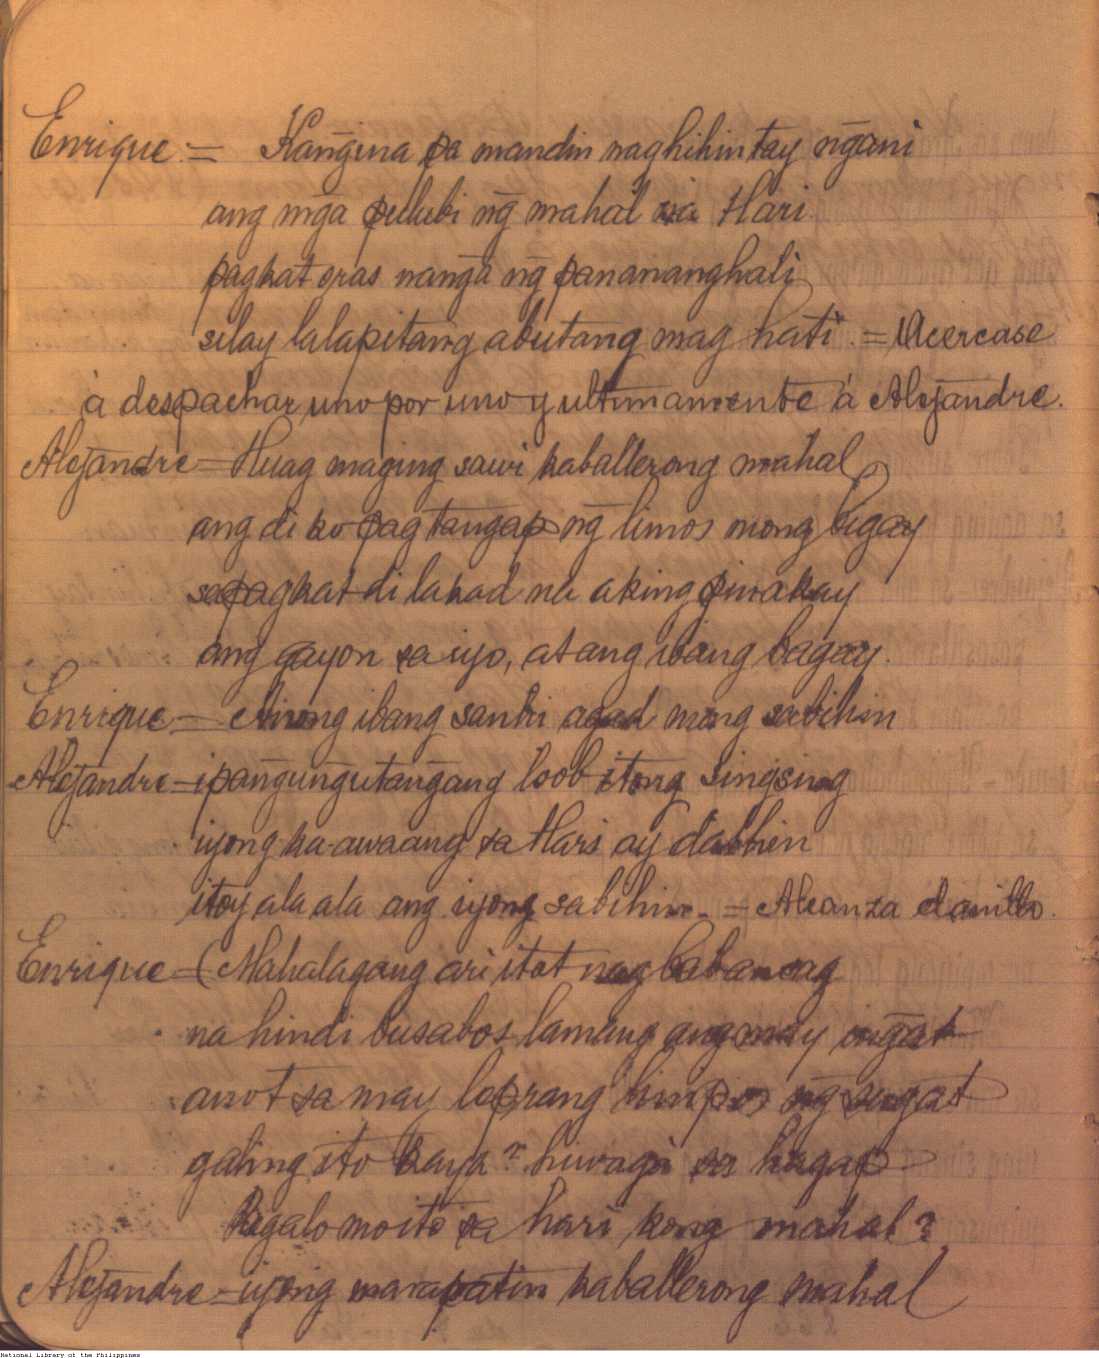 Enrique = Kang̃ina pa mandin naghihintay ng̃ani
ang mg̃a pulubi ng̃ mahal na Hari
pagkat oras nang̃a ng̃ pananang̃hali
silay lalapitang abutang mag hati. = Acercase
à despachar, uno por uno y ultimamente á Alejandre.
Alejandre = Huag maging sawi kaballerong mahal
ang di ko pag tangap ng̃ limos mong bigay
sapagkat di lakad na aking piwakay
ang gayon sa iyo, at ang ibang bagay.
Enrique = Anong ibang sanhi agad mong sabihin
Alejandre = ipang̃ung̃utang̃ang loob itong singsing
iyong ka-awaang sa Hari ay dalhin
itoy ala ala ang iyong sabihin. = Alcanza el anillo.
Enrique = (Mahalagang ari itot nag babanaag
na hindi busabos lamang ang may ing̃at
anot sa may leprang himpos ng̃ sugat
galing ito kaya? hiwaga sa hagap
Regalo mo ito sa hari kong mahal?
Alejandre = iyong marapatin kaballerong mahal
National Library of the Philippines